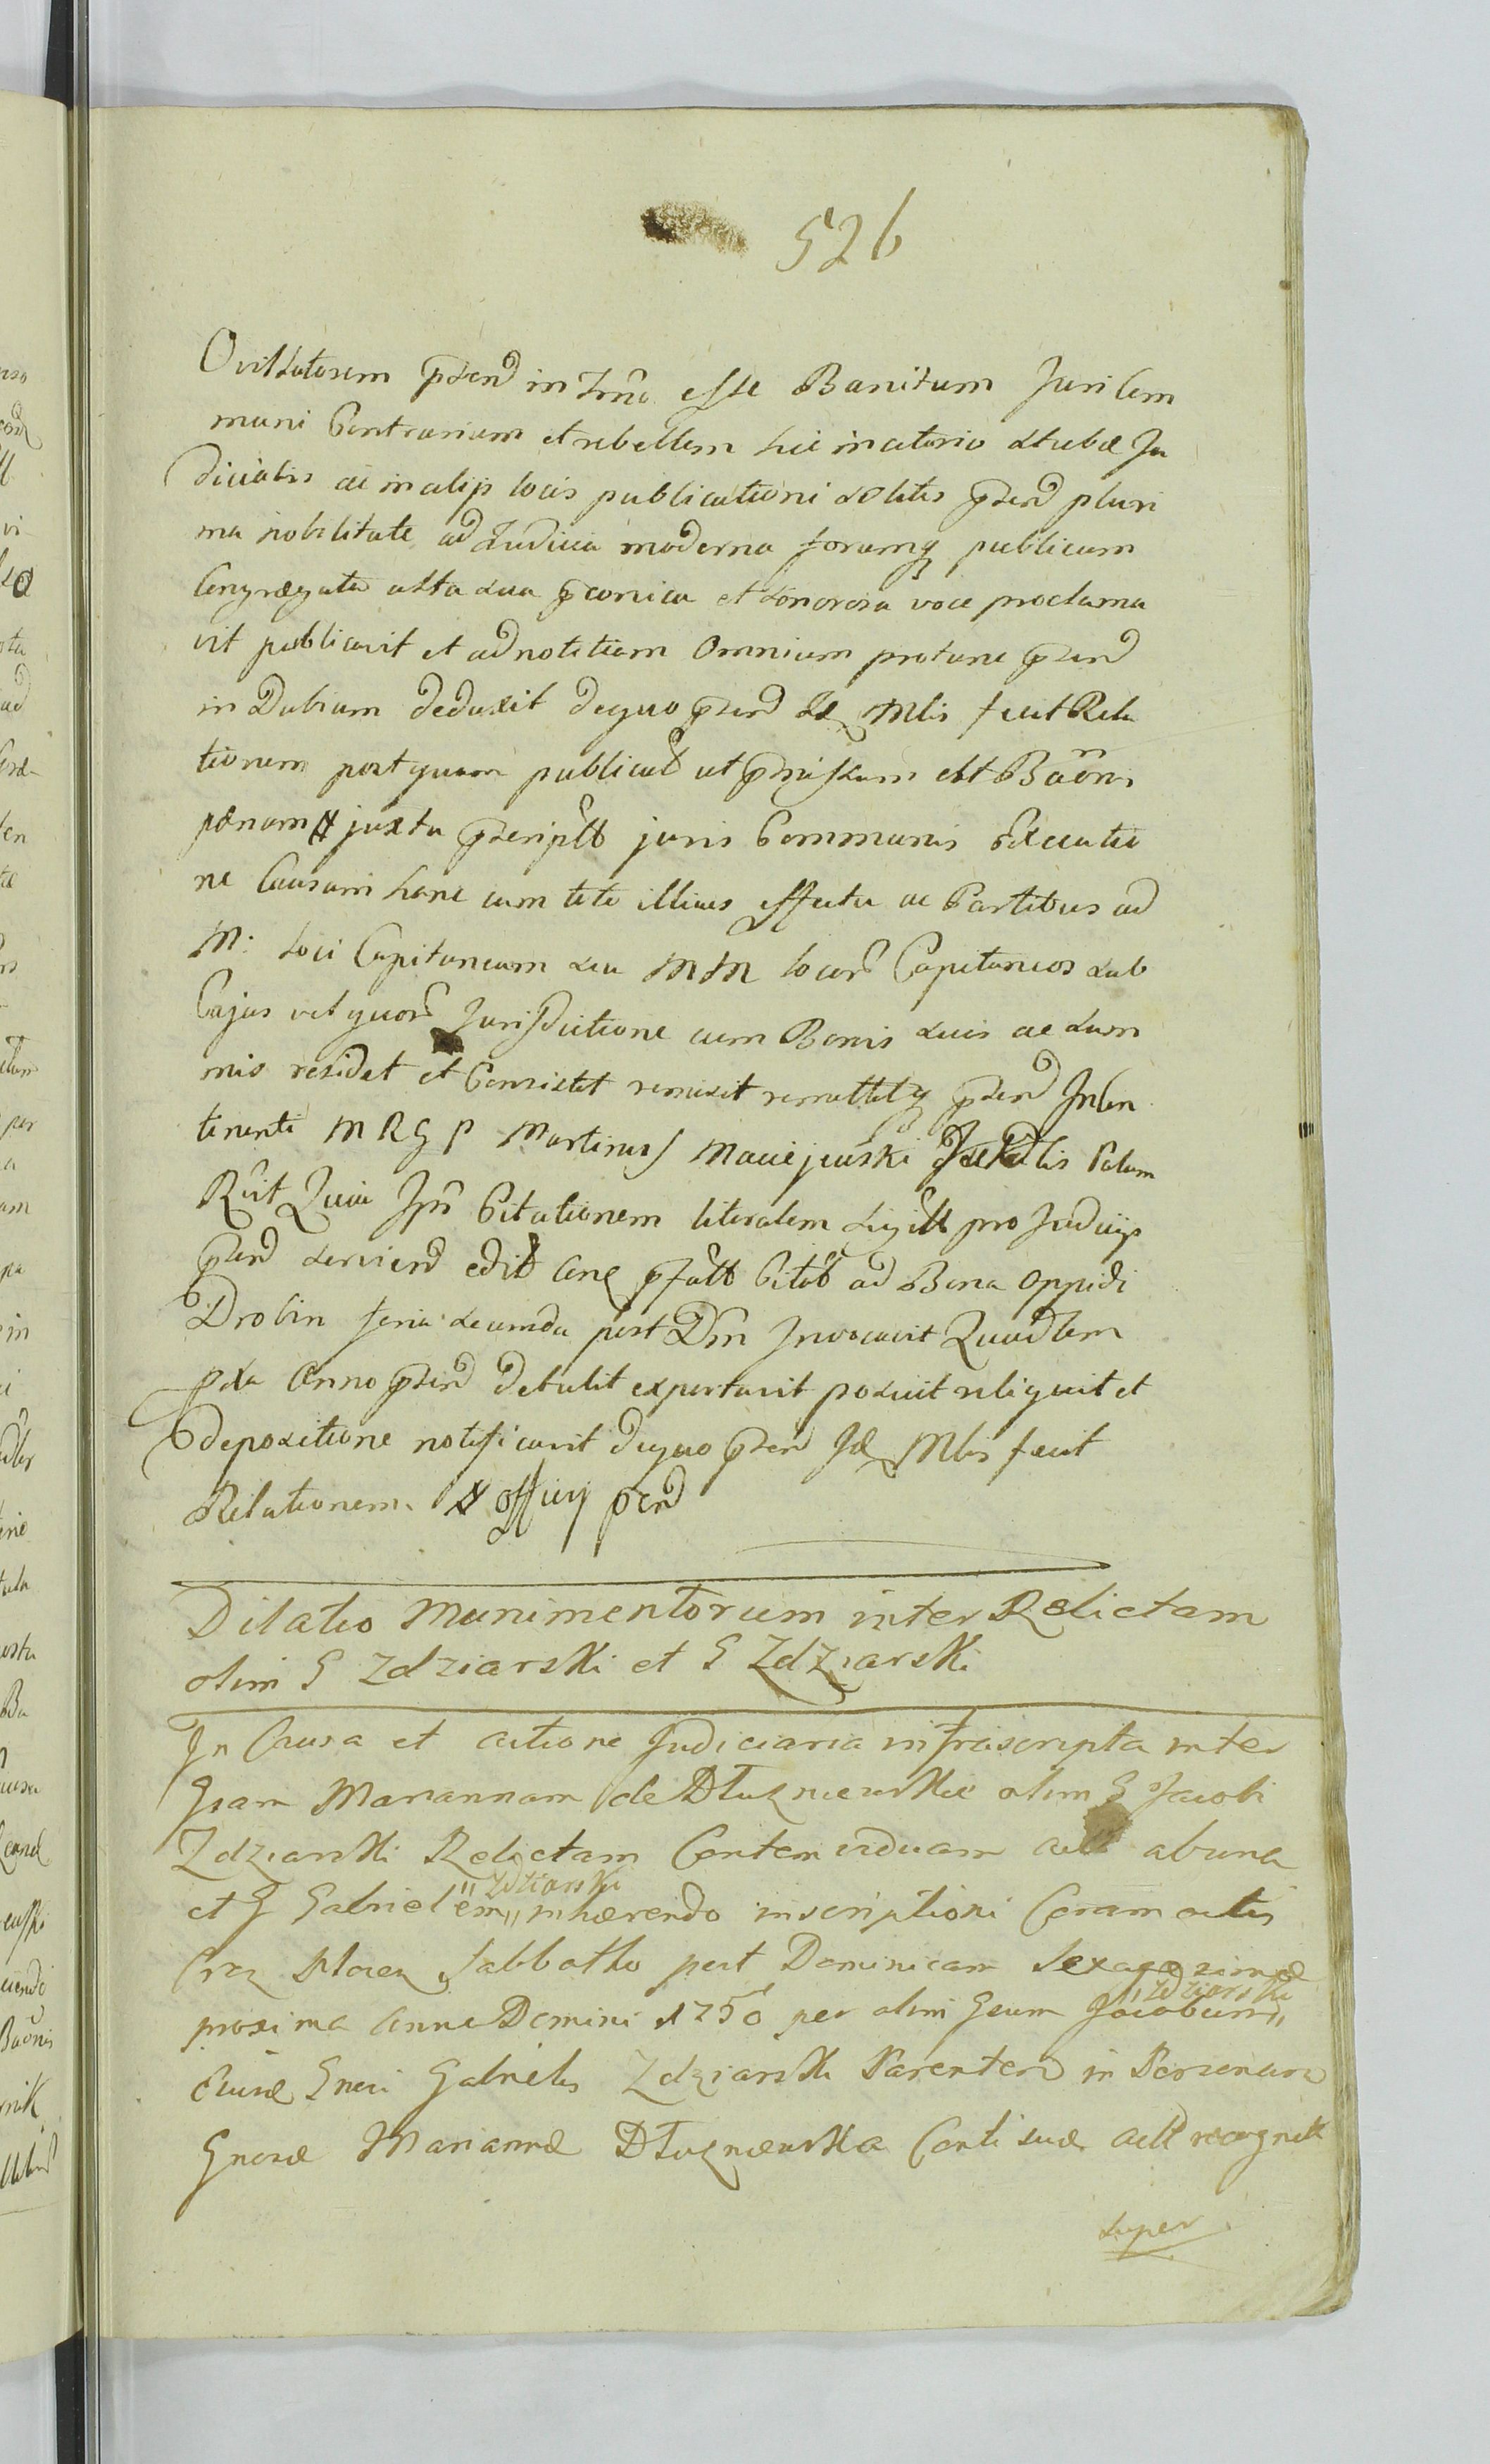 526
Civitatorem pnd in Trno esse Banitum Juri Com
muni Contrarium et rebellem hic in atrio stubae Ju
dicialis ac in alijs locis publicationi solitis pntnd pluri
ma nobilitate ad Judicia moderna forumq publicum
Congregata alta sua pconica et sonorosa voce proclama
vit publicavit et ad notitiam Omnium protunc pntnd
in Dubium deduxit dequo pntnd Id Mlis fecit Rela
tionem post quam publicat ut pmissum est Baonis
paenam juxta pscript juris Communis Executio
ne Causam hanc cum toto illius effectu ac Partibus ad
M: loci Capitaneum seu MM locor Capitaneos sub
Cujus vel quor Jurisdictione cum Bonis suis ac sum
mis residet et Consistit remisit remittitq pntnd Incon
tinenti M R G P Martinus Maciejewski Judlis Palam
Rcit Quia Ipse Citationem literalem sigill pro Judicijs
pntnd serviend edit Cnq pfatt Citat ad Bona Oppidi
Drobin feria secunda post Dnm Invocavit Quadlem
pxa Anno pntnd detulit exportavit posuit reliquit et
depositione notificavit dequo pntnd Id Mlis fecit
Relationem. officij pnd
Dilatio Munimentorum inter Relictam
olim G Zdziarski et G Zdziarski
In Causa et actione Judiciaria infrascripta inter
Gsam Mariannam de Dłuzniewskie olim G Jacobi
Zdziarski Relictam Conten viduam act ab una
et G Gabrielem " Zdziarski " inhaerendo inscriptioni Coram actis
Crz Plocen Sabbatho post Dominicam Sexagesimae
proxima Anno Domini 1750 per olim Gsum Jacobum " Zdziarski "
Eiusd Gnesi Gabrielis Zdziarski Parentem in Personam
Gnosae Mariannae Dłuzniewska Conti suae act recognitt
super